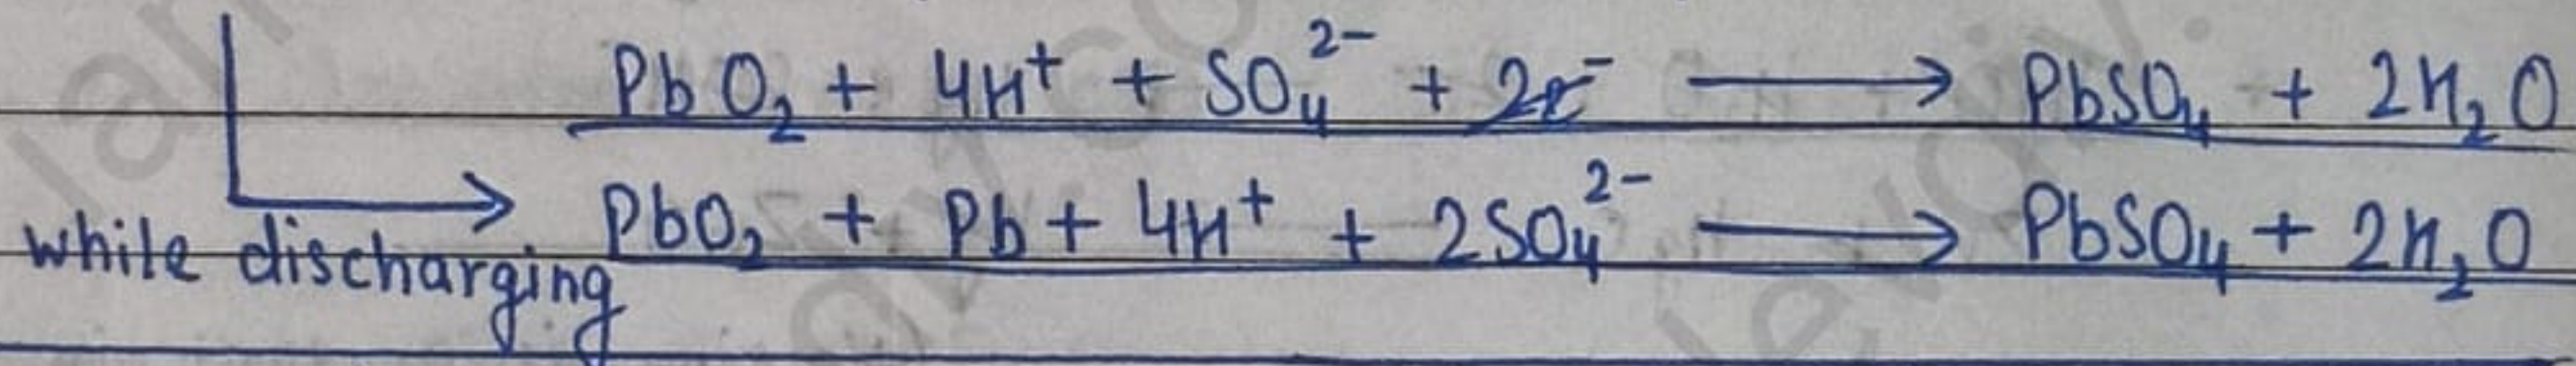 PbO₂ + 4H⁺ + SO₄²⁻ + 2e⁻ ⟶ PbSO₄ + 2H₂O
while discharging PbO₂ + Pb + 4H⁺ + 2SO₄²⁻ ⟶ PbSO₄ + 2H₂O